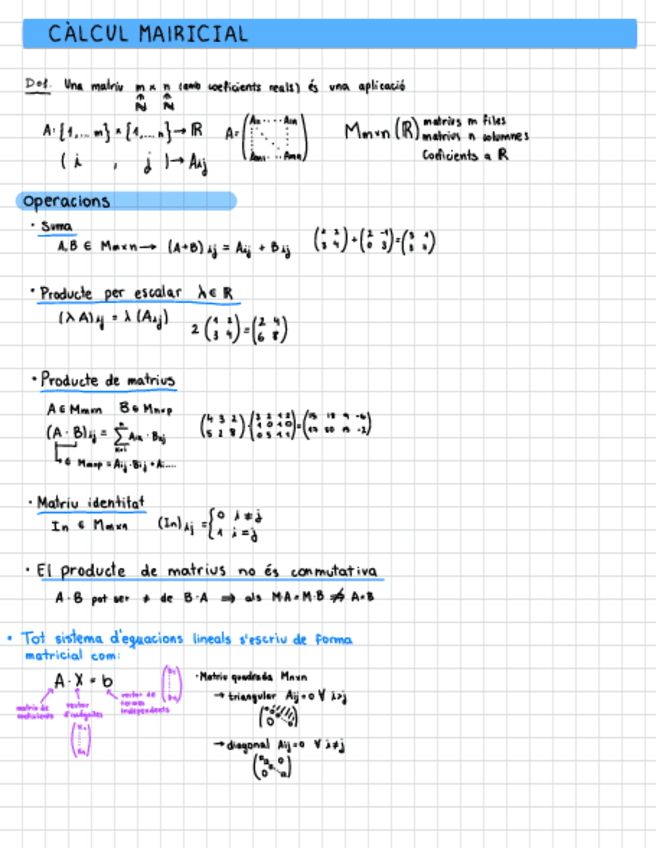 CÀLCUL MATRICIAL
Def. Una matriu m × n (amb coeficients reals) és una aplicació
ℕ ℕ
A: {1,... m} × {1,..., n} → ℝ
( i , j ) ↦ Aij
M m×n (ℝ) matrius m files
matrius n columnes
coeficients a ℝ
Operacions
· Suma
A, B ∈ Mm×n → (A+B)ij = Aij + Bij
· Producte per escalar λ ∈ ℝ
(λA)ij = λ(Aij)
2 (1 2 / 3 4) = (2 4 / 6 8)
· Producte de matrius
A ∈ Mm×n B ∈ Mn×p
(A · B)ij = Σ Aik · Bkj
· Matriu identitat
In ∈ Mn×n (In)ij = { 0 i ≠ j
1 i = j
· El producte de matrius no és conmutativa
A · B pot ser ≠ de B · A ⇒ als M·A = M·B ⇏ A = B
· Tot sistema d'equacions lineals s'escriu de forma
matricial com:
A · X = b
matriu de
coeficients
vector
d'incògnites
vector de
termes
independents
· Matriu quadrada Mn×n
→ triangular Aij = 0 ∀ i>j
→ diagonal Aij = 0 ∀ i≠j